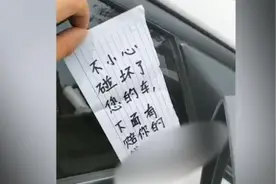 不小心
碰坏了
您的车，
下面有
赔你的